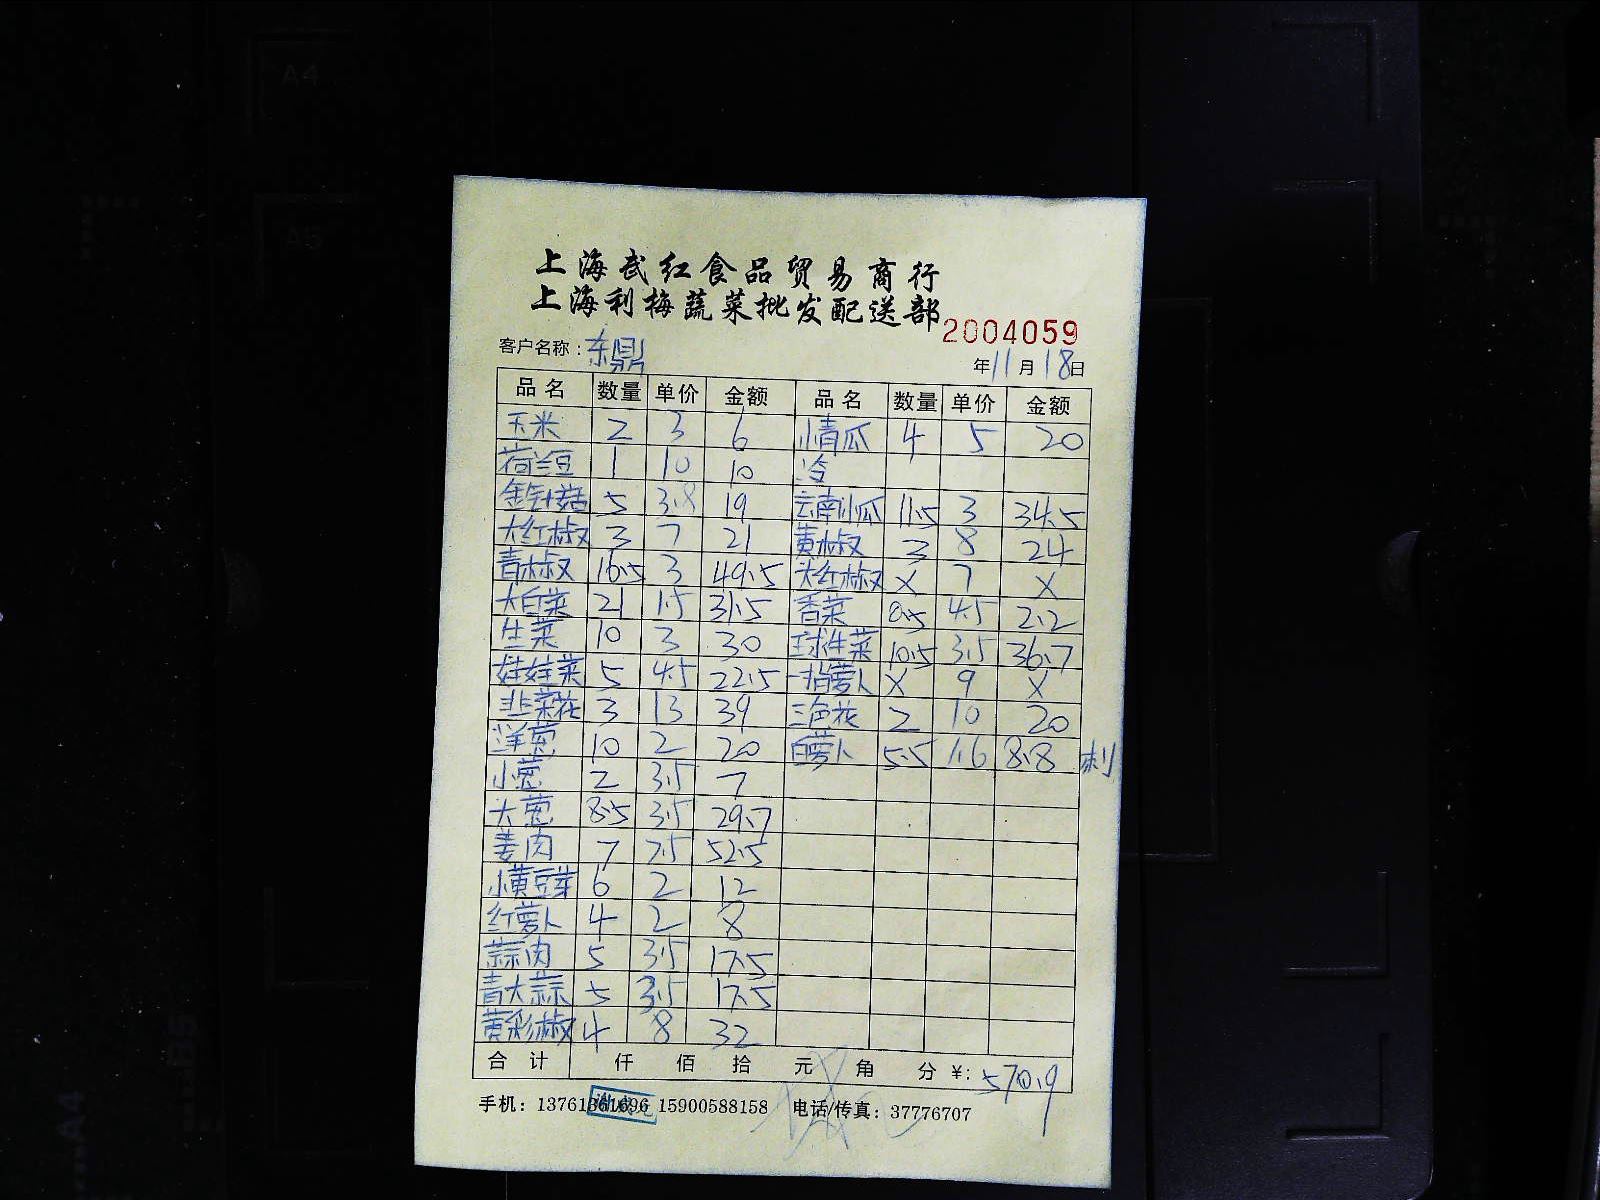 A4
A5
上海武红食品贸易商行
上海利梅蔬菜批发配送部
2004059
客户名称：东鼎 年11月18日
品名 数量 单价 金额 品名 数量 单价 金额
玉米 2 3 6 小青瓜 4 5 20
荷兰豆 1 10 10 冷
金针菇 5 3.8 19 云南小瓜 11.5 3 34.5
大红椒 3 7 21 黄椒 3 8 24
青椒 16.5 3 49.5 大红椒 X 7 X
大白菜 21 1.5 31.5 香菜 0.5 4.5 2.2
生菜 10 3 30 球生菜 10.5 3.5 36.7
娃娃菜 5 4.5 22.5 一指萝卜 X 9 X
韭菜花 3 13 39 三色花 2 10 20
洋葱 10 2 20 白萝卜 5.5 1.6 8.8 刺
小葱 2 3.5 7
大葱 8.5 3.5 29.7
姜肉 7 7.5 52.5
小黄豆芽 6 2 12
红萝卜 4 2 8
蒜肉 5 3.5 17.5
青大蒜 5 3.5 17.5
黄彩椒 4 8 32
合计 仟 佰 拾 元 角 分 ¥: 570.9
手机：13761361696 15900588158 电话/传真：37776707
A4
B5